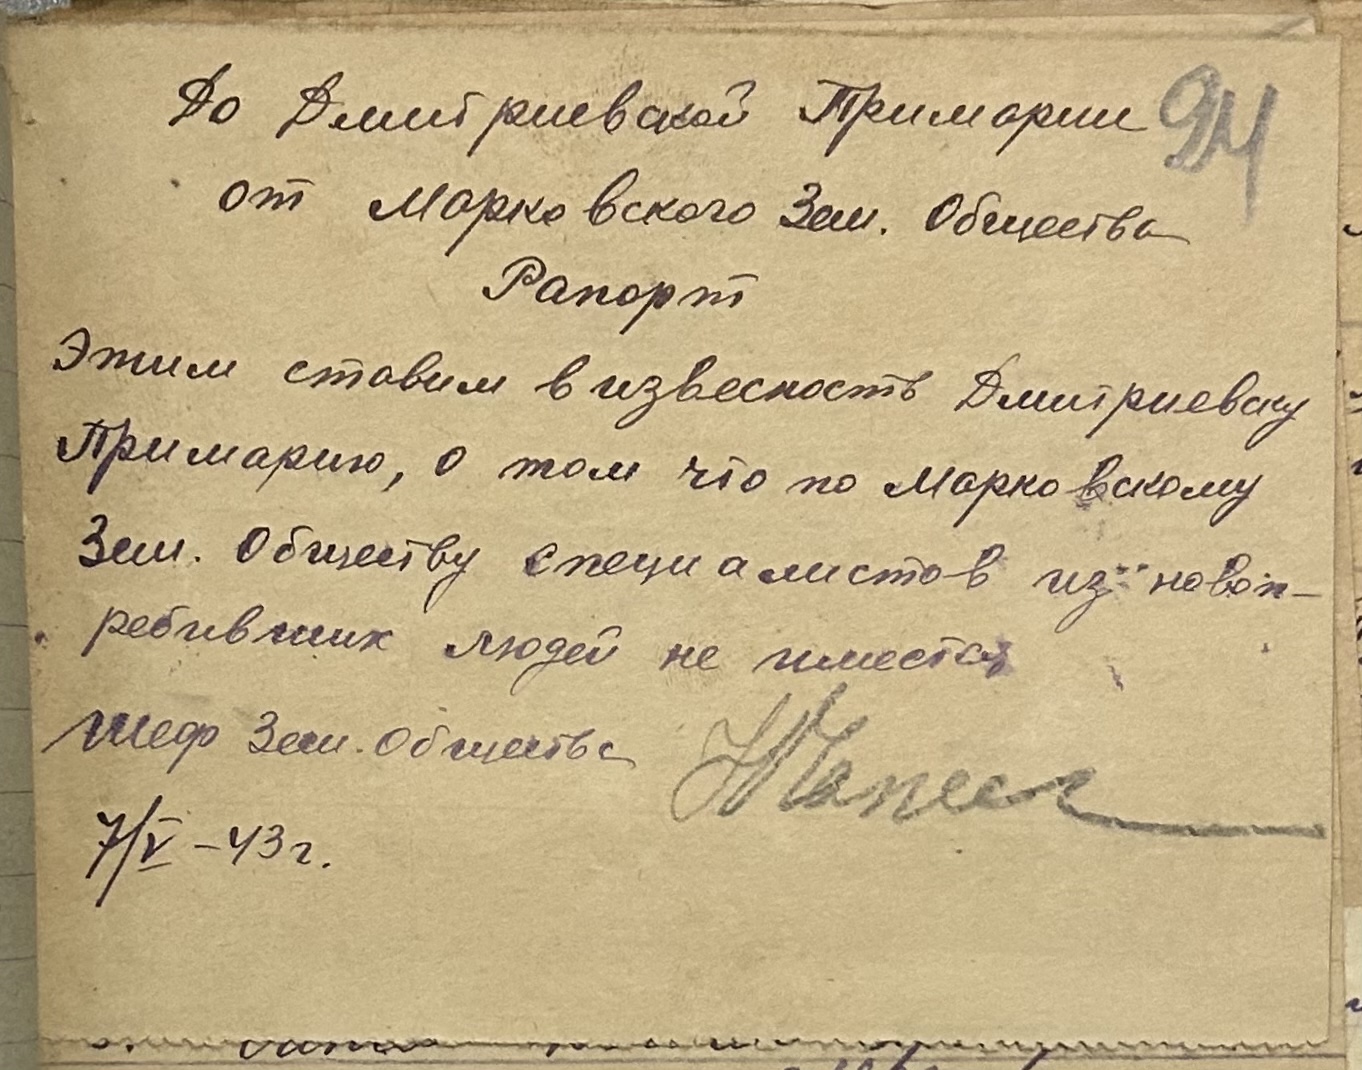 До Дмитриевской Примарии
94
от Марковского Зем. Общества
Рапорт
Этим ставим в извесность Дмитриевску
Примарию, о том что по Марковскому
Зем. Обществу специалистов из новоп-
ребивших людей не имеется
Шеф Зем. Общества
7/V – 43 г.